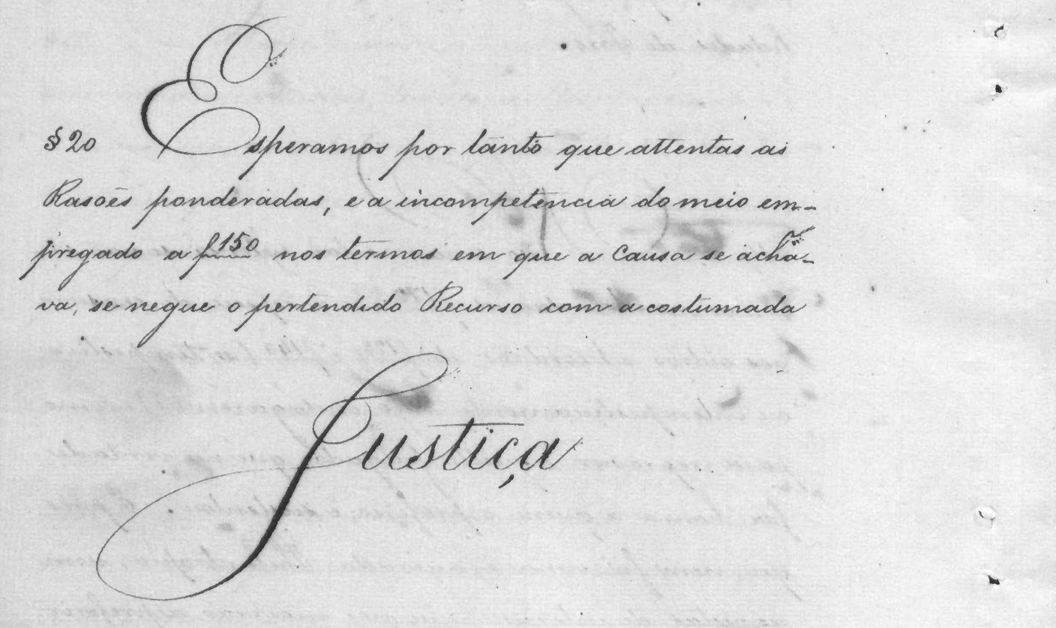 § 20 Esperamos por tanto que attentas as
Rasoēs ponderadas, e a incompetencia do meio em-
pregado a f 150 nos termos em que a Causa se acha-
va, se negue o pertendido Recurso com a costumada
Justiça